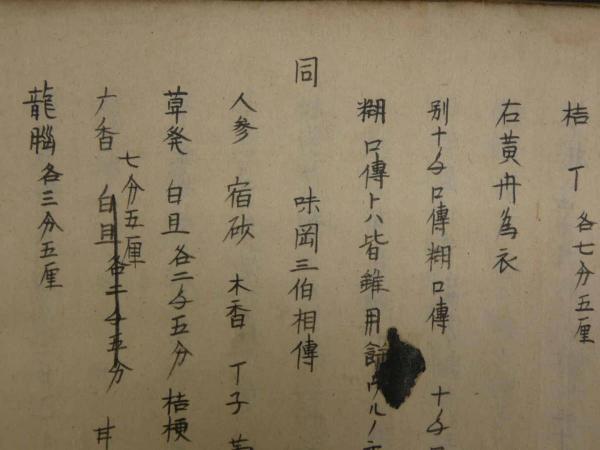 桔 丁 各七分五厘
右黄丹為衣
別十匁口傳糊口傳 十匁
糊口傳トハ皆雖用
同 味岡三伯相傳
人参 宿砂 木香 丁子
草発 白旦 各二匁五分 桔梗
七分五厘
六香 白旦 各二匁五分 甘
龍腦 各三分五厘